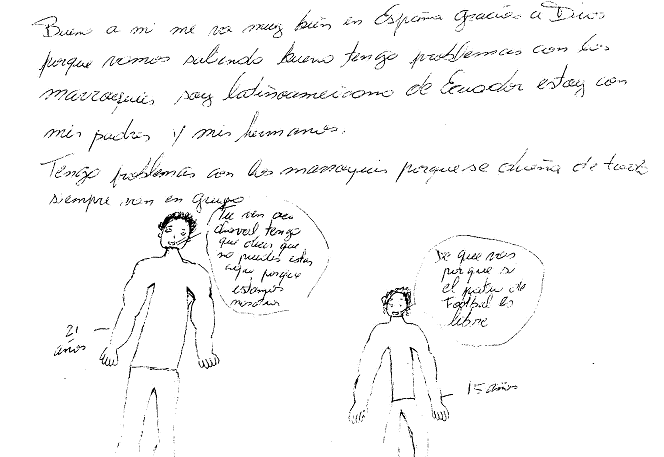 Bueno a mi me va muy bien en España gracias a Dios
porque vamos subiendo bueno tengo problemas con los
marroquis soy latinoamericano de Ecuador estoy con
mis padres y mis hermanos.
Tengo problemas con los marroquis porque se dueña de todo
siempre van en grupo
Tu ven aca
chaval tengo
que decir que
no puedes estar
aqui porque
estamos
nosotros
21
años
De que vas
porque si
el patio de
Footbal es
libre
15 años